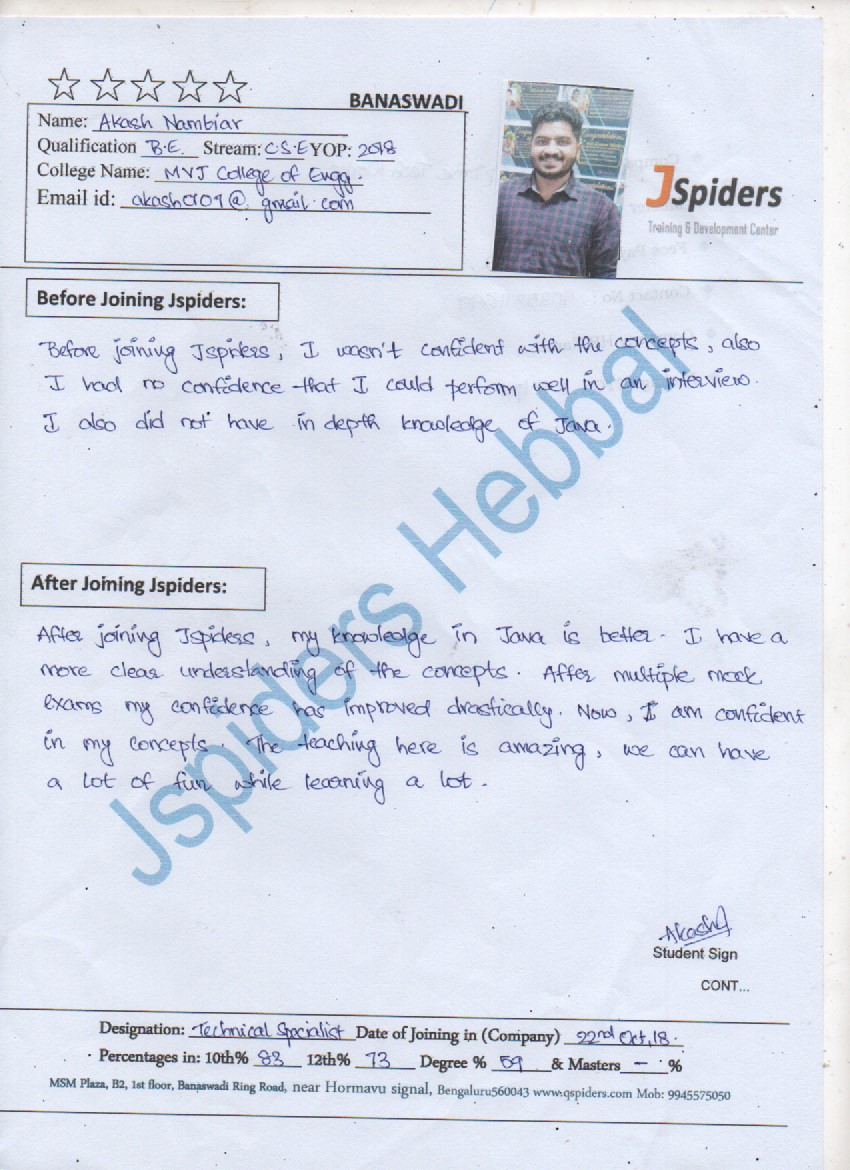 BANASWADI
Name: Akash Nambiar
Qualification B.E. Stream: C.S.E YOP: 2018
College Name: MVJ College of Engg.
Email id: akash0109@gmail.com
JSpiders
Training & Development Center
Before Joining Jspiders:
Before joining Jspiders, I wasn't confident with the concepts, also
I had no confidence that I could perform well in an interview.
I also did not have in depth knowledge of Java.
After Joining Jspiders:
After joining Jspiders, my knowledge in Java is better. I have a
more clear understanding of the concepts. After multiple mock
exams my confidence has improved drastically. Now, I am confident
in my concepts. The teaching here is amazing, we can have
a lot of fun while learning a lot.
Jspiders Hebbal
Akash
Student Sign
CONT...
Designation: Technical Specialist Date of Joining in (Company) 22nd Oct, 18.
Percentages in: 10th% 83 12th% 73 Degree % 59 & Masters - %
MSM Plaza, B2, 1st floor, Banaswadi Ring Road, near Hormavu signal, Bengaluru560043 www.qspiders.com Mob: 9945575050